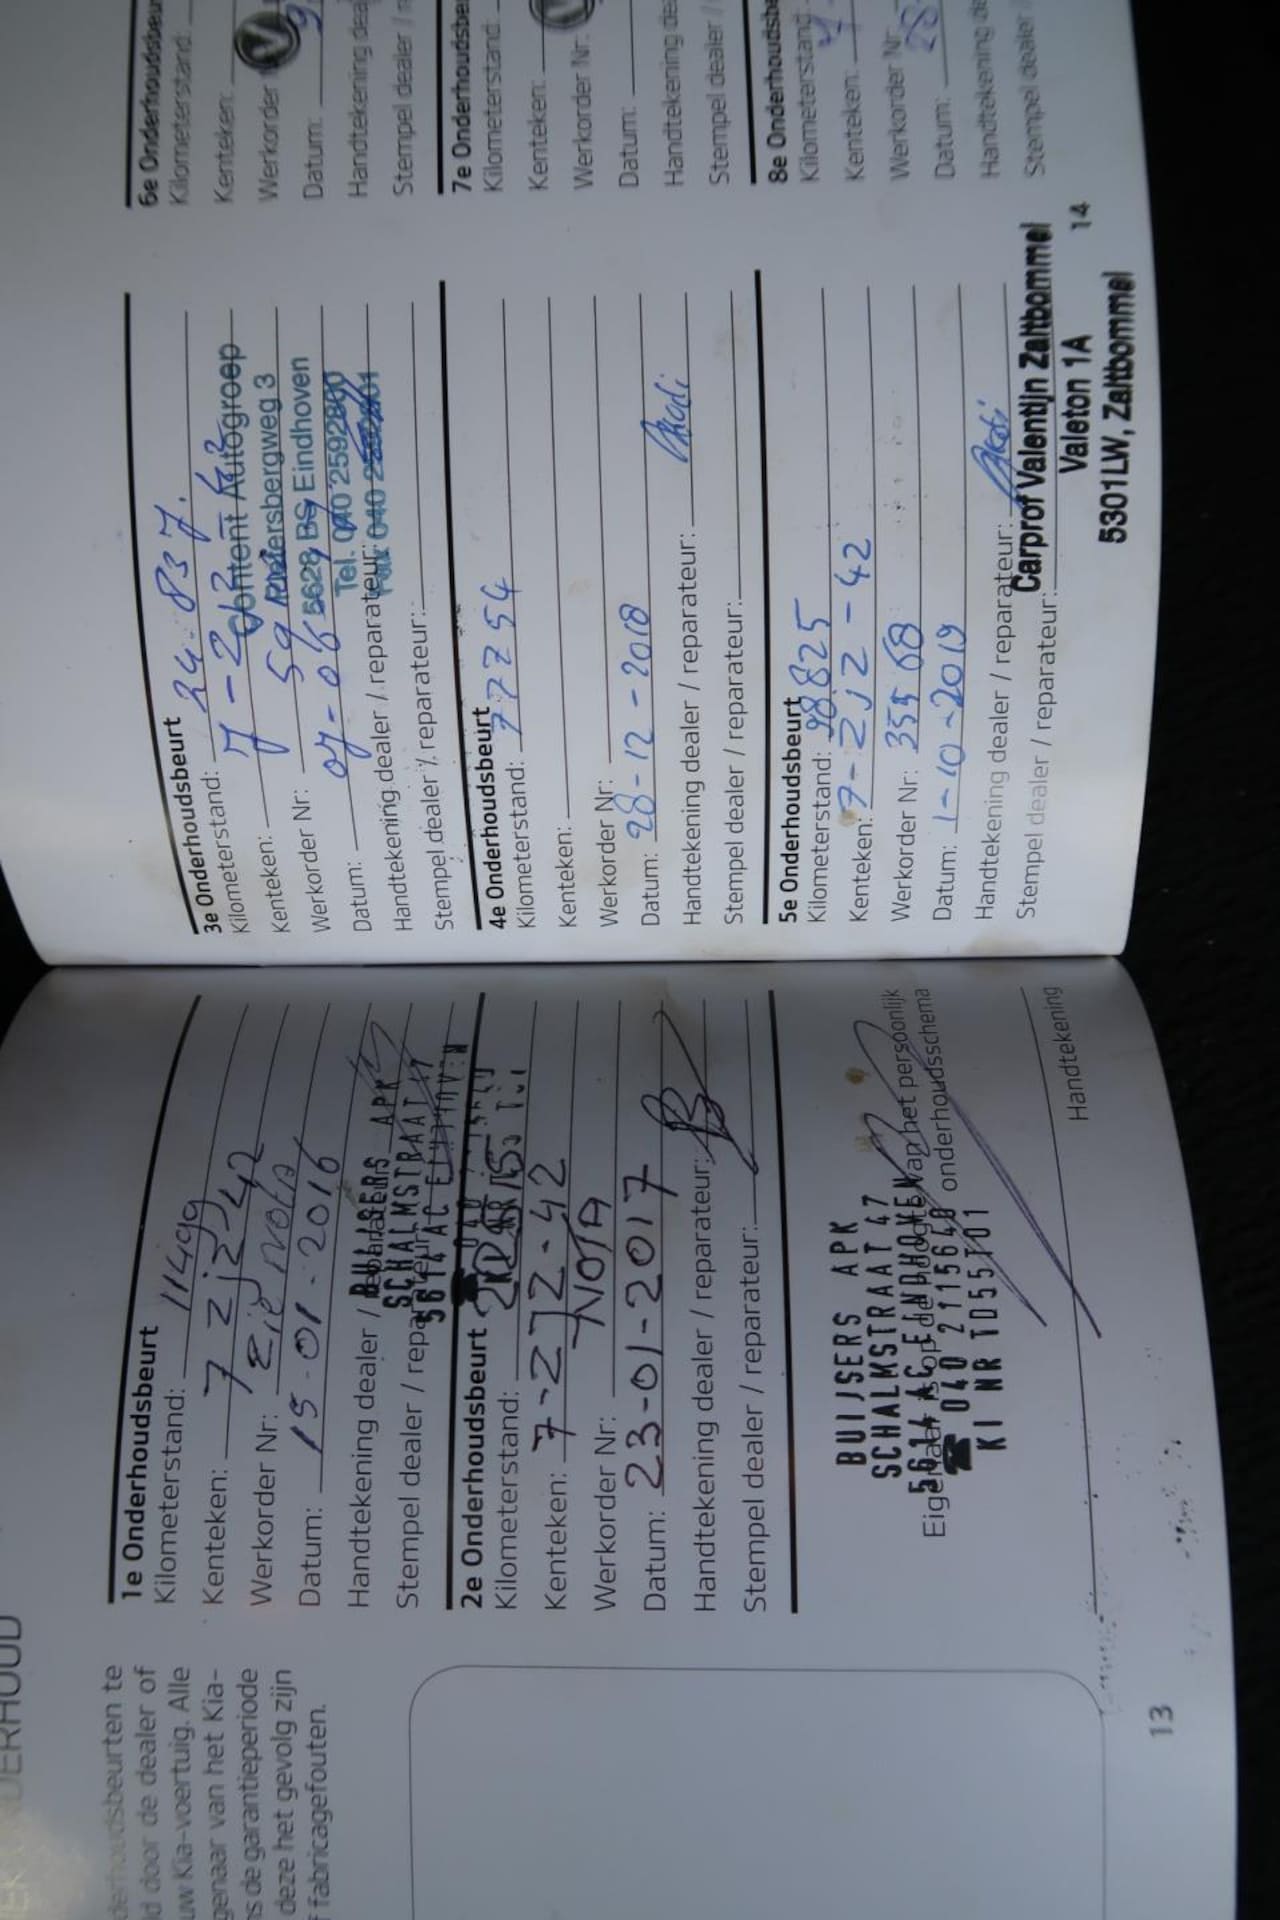 DERHOUD
derhoudsbeurten te
d door de dealer of
uw Kia-voertuig. Alle
genaar van het Kia-
ns de garantieperiode
deze het gevolg zijn
f fabricagefouten.
1e Onderhoudsbeurt
Kilometerstand:
Kenteken: 7 ZJZ 42
Werkorder Nr: Zie nota
Datum: 15-01-2016
Handtekening dealer /
Stempel dealer /
BUIJSERS APK
SCHALMSTRAAT 47
5614 AC
2e Onderhoudsbeurt
Kilometerstand:
Kenteken: 7-ZJZ-42
Werkorder Nr: NOTA
Datum: 23-01-2017
Handtekening dealer / reparateur:
Stempel dealer / reparateur:
BUIJSERS APK
SCHALMSTRAAT 47
5614 AC EINDHOVEN
☎ 040 2115640
KI NR TD55T01
Eigenaar is op de hoogte van het persoonlijk
onderhoudsschema
Handtekening
13
3e Onderhoudsbeurt
Kilometerstand: 24.837.
Kenteken:
Werkorder Nr:
Datum:
Handtekening dealer / reparateur:
Stempel dealer / reparateur:
Content Autogroep
5628 BS Eindhoven
4e Onderhoudsbeurt
Kilometerstand: 77254
Kenteken:
Werkorder Nr:
Datum: 28-12-2018
Handtekening dealer / reparateur:
Stempel dealer / reparateur:
5e Onderhoudsbeurt
Kilometerstand: 98825
Kenteken: 7-ZJZ-42
Werkorder Nr: 35568
Datum: 1-10-2019
Handtekening dealer / reparateur:
Stempel dealer / reparateur:
Carprof Valentijn Zaltbommel
Valeton 1A
5301LW, Zaltbommel
14
6e Onderhoudsbeur
Kilometerstand:
Kenteken:
Werkorder
Datum:
Handtekening dea
Stempel dealer / r
7e Onderhoudsbe
Kilometerstand:
Kenteken:
Werkorder Nr:
Datum:
Handtekening de
Stempel dealer /
8e Onderhoudsb
Kilometerstand:
Kenteken:
Werkorder Nr
Datum:
Handtekening de
Stempel dealer